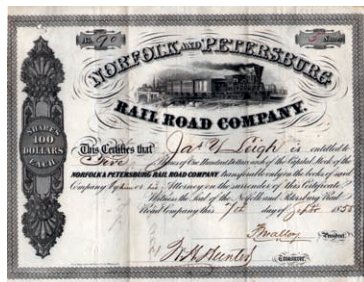 No. 90
5 Shares
NORFOLK AND PETERSBURG
RAIL ROAD COMPANY.
SHARES
100
DOLLARS
EACH
This Certifies that Jas Y Leigh is entitled to
Five Shares of One Hundred Dollars each of the Capital Stock of the
NORFOLK & PETERSBURG RAIL ROAD COMPANY transferable only on the books of said
Company by him or his Attorney on the surrender of this Certificate
Witness the Seal of the Norfolk and Petersburg Rail
Road Company this 7th day of 185
President.
Treasurer.